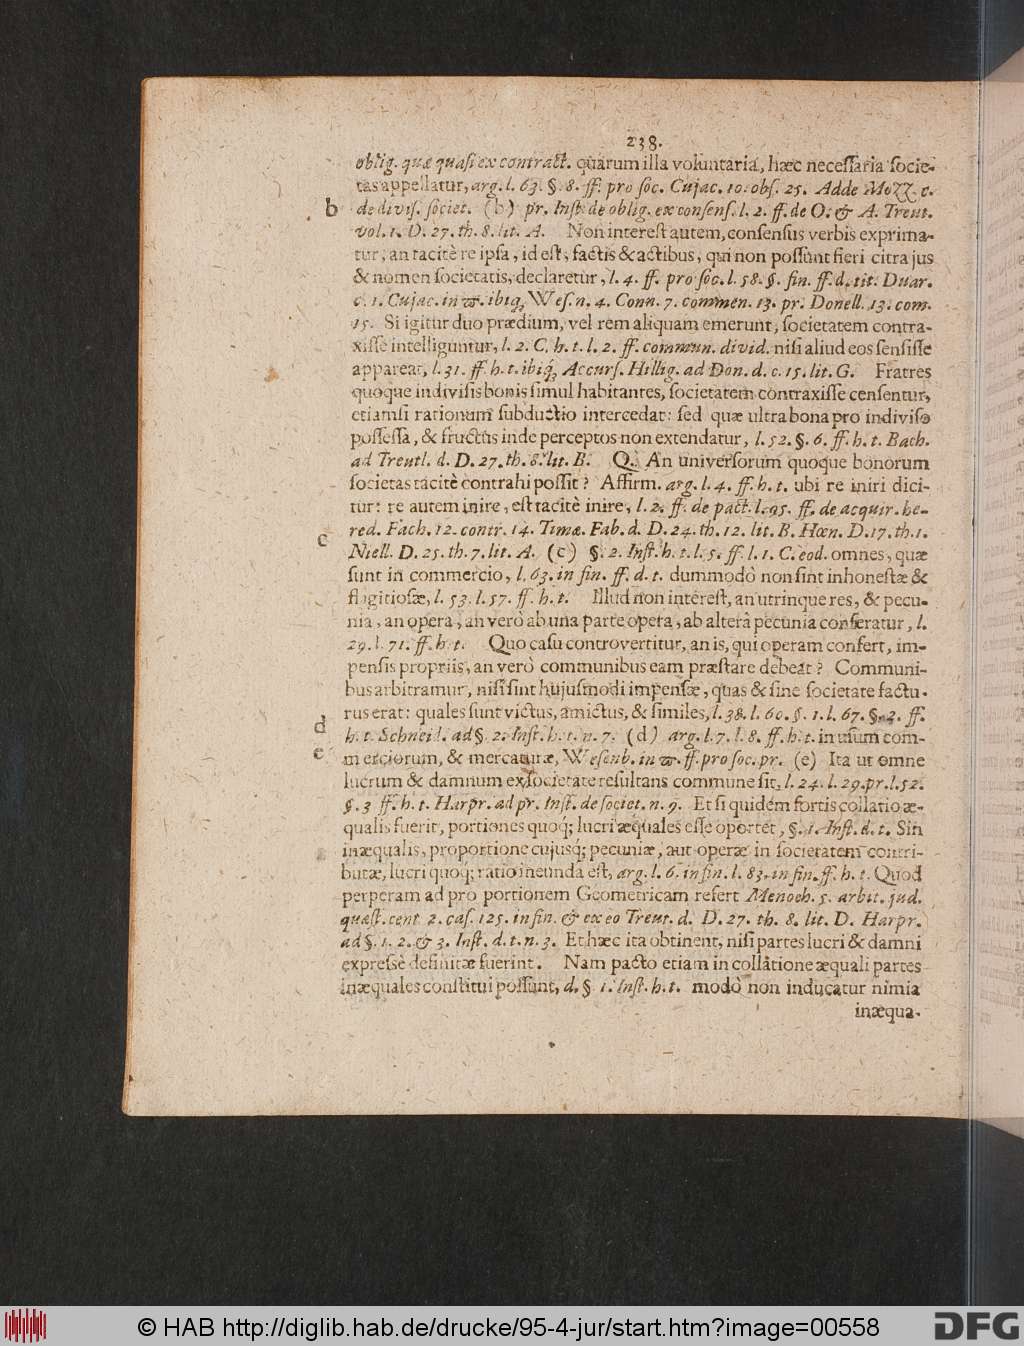 238.
oblig. quæ quasi ex contract. quarum illa voluntaria, hæc necessaria socie-
tas appellatur, arg. l. 63. §. 8. ff. pro soc. Cujac. 10. obs. 25. Adde Mozz. c.
b de divis. societ. (b) pr. Inst. de oblig. ex consens. l. 2. ff. de O. & A. Treut.
vol. 1. D. 27. th. 8. lit. A. Non interest autem, consensus verbis exprima-
tur, an tacitè re ipsa, id est, factis & actibus, qui non possunt fieri citra jus
& nomen societatis, declaretur, l. 4. ff. pro soc. l. 58. §. fin. ff. d. tit. Duar.
c. 1. Cujac. in ϖ. ibiq; Wes. n. 4. Conn. 7. commen. 13. pr. Donell. 13. com.
15. Si igitur duo prædium, vel rem aliquam emerunt, societatem contra-
xisse intelliguntur, l. 2. C. h. t. l. 2. ff. commun. divid. nisi aliud eos sensisse
appareat, l. 31. ff. h. t. ibiq; Accurs. Hillig. ad Don. d. c. 15. lit. G. Fratres
quoque indivisis bonis simul habitantes, societatem contraxisse censentur,
etiamsi rationum subductio intercedat: sed quæ ultra bona pro indiviso
possessa, & fructus inde perceptos non extendatur, l. 52. §. 6. ff. h. t. Bach.
ad Treutl. d. D. 27. th. 8. lit. B. Q. An universorum quoque bonorum
societas tacitè contrahi possit? Affirm. arg. l. 4. ff. h. t. ubi re iniri dici-
tur: re autem inire, est tacitè inire, l. 2. ff. de pact. l. 95. ff. de acquir. he-
red. Fach. 12. contr. 14. Timæ. Fab. d. D. 24. th. 12. lit. B. Hœn. D. 17. th. 1.
c Niell. D. 25. th. 7. lit. A. (c) §. 2. Inst. h. t. l. 5. ff. l. 1. C. eod. omnes, quæ
sunt in commercio, l. 63. in fin. ff. d. t. dummodò non sint inhonestæ &
flagitiosæ, l. 53. l. 57. ff. h. t. Illud non interest, an utrinque res, & pecu-
nia, an opera, an verò ab una parte opera, ab alterâ pecunia conferatur, l.
29. l. 71. ff. h. t. Quo casu controvertitur, an is, qui operam confert, im-
pensis propriis, an verò communibus eam præstare debeat? Communi-
bus arbitramur, nisi sint hujusmodi impensæ, quas & sine societate factu-
rus erat: quales sunt victus, amictus, & similes, l. 38. l. 60. §. 1. l. 67. §. 2. ff.
d h. t. Schneid. ad §. 2. Inst. h. t. n. 7. (d) arg. l. 7. l. 8. ff. h. t. in usum com-
e merciorum, & mercaturæ, Wesenb. in ϖ. ff. pro soc. pr. (e) Ita ut omne
lucrum & damnum ex societate resultans commune sit, l. 24. l. 29. pr. l. 52.
§. 3 ff. h. t. Harpr. ad pr. Inst. de societ. n. 9. Et si quidem sortis collatio æ-
qualis fuerit, portiones quoq; lucri æquales esse oportet, §. 1. Inst. d. t. Sin
inæqualis, pro portione cujusq; pecuniæ, aut operæ in societatem contri-
butæ, lucri quoq; ratio ineunda est, arg. l. 6. in fin. l. 83. in fin. ff. h. t. Quod
perperam ad pro portionem Geometricam refert Menoch. 5. arbit. jud.
quæst. cent. 2. cas. 125. in fin. & ex eo Treut. d. D. 27. th. 8. lit. D. Harpr.
ad §. 1. 2. & 3. Inst. d. t. n. 3. Et hæc ita obtinent, nisi partes lucri & damni
expressè definitæ fuerint. Nam pacto etiam in collatione æquali partes
inæquales constitui possunt, d. § 1. Inst. h. t. modò non inducatur nimia
inæqua-
© HAB http://diglib.hab.de/drucke/95-4-jur/start.htm?image=00558
DFG